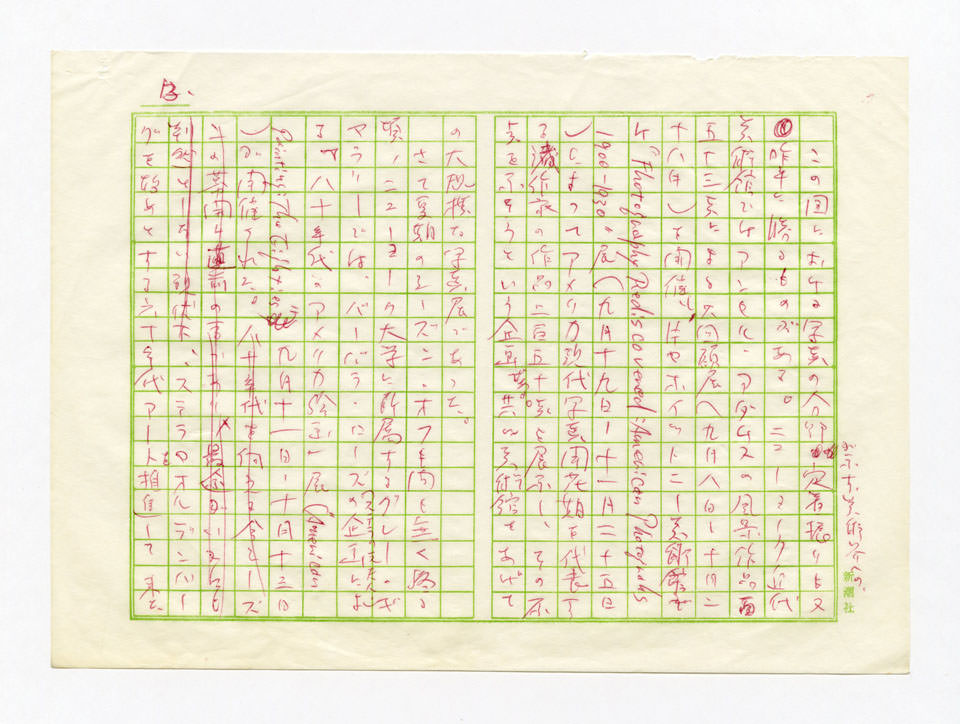 13.
が示す美術界への、
この国における写真の定着振りもまた
昨年に勝るものがある。ニューヨーク近代
美術館でのアンセル・アダムスの風景作品百
五十三点による大回顧展（九月八日ー十月二
十八日）を開催、ホイットニー美術館
“Photography Rediscovered: American Photographs
1900-1930”展（九月十九日ー十一月二十五日
）によってアメリカ現代写真開花期を代表す
る諸作家の作品二百五十点を展示し、その原
点を示そうという企画。共に美術館をあげて
の大規模な写真展であった。
さて夏期のシーズン・オフも間も無く終る
頃、ニューヨーク大学に所属するグレー・ギ
ャラリーでは、バーバラ・ローズの企画によ
る「八十年代のアメリカ絵画」展（American
Painting: The Eighties 九月十一日ー十月十三日
）が開催された。八十年代を シーズ
ンの幕開け直前の事であり
ステラのオルデンバー
グを始めとする六十年代アートを推進して来た
新潮社